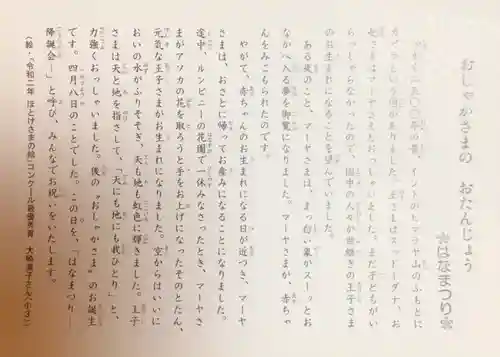 おしゃかさまの おたんじょう
はなまつり
今から二五〇〇年の昔、インドのヒマラヤ山のふもとに
カピラという国がありました。王さまはスッドーダナ、お
妃さまはマーヤさまとおっしゃいました。まだ子どもがい
らっしゃらなかったので、国中の人々が世継ぎの王子さま
のお生まれになることを望んでいました。
ある夜のこと、マーヤさまは、まっ白い象がスーッとお
なかへ入る夢を御覧になりました。マーヤさまが、赤ちゃ
んをみごもられたのです。
やがて、赤ちゃんのお生まれになる日が近づき、マーヤ
さまは、おさとに帰ってお産みになることになりました。
途中、ルンビニーの花園で一休みなさったとき、マーヤさ
まがアソカの花を取ろうと手をお上げになったそのとたん、
元気な王子さまがお生まれになりました。空からはいいに
おいの水がふりそそぎ、天も地も虹色に輝きました。王子
さまは天と地を指さして、「天にも地にも我ひとり」と、
力強くおっしゃいました。後の“おしゃかさま”のお誕生
です。四月八日のことでした。この日を、「はなまつり―
降誕会―」と呼び、みんなでお祝いをいたします。
(絵・「令和二年 ほとけさまの絵」コンクール最優秀賞 大 子さん〈小3〉)